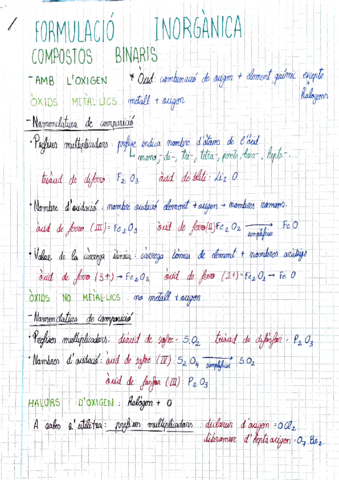 FORMULACIÓ INORGÀNICA
COMPOSTOS BINARIS
- AMB L'OXIGEN * Òxid: combinació de oxigen + element químic excepte halògens
ÒXIDS METAL·LICS: metall + oxigen
- Nomenclatura de composició
• Prefixes multiplicadors: prefixe indica nombre d'àtoms de l'òxid
mono-, di-, tri-, tetra-, penta-, hexa-, hepta-.
triòxid de diferro F₂O₃ òxid de diliti - Li₂O
• Nombre d'oxidació: nombre oxidació element + oxigen → nombres romans.
òxid de ferro (III) = Fe₂O₃ òxid de ferro (II) Fe₂O₂ → simplifica FeO
• Valor de la càrrega iònica: càrrega iònica de element + nombres aràbigs
òxid de ferro (3+) → Fe₂O₃ òxid de ferro (2+) = Fe₂O₂ → FeO
ÒXIDS NO METAL·LICS no metall + oxigen
- Nomenclatura de composició
• Prefixes multiplicadors: diòxid de sofre - SO₂ triòxid de difòsfor - P₂O₃
• Nombres d'oxidació: òxid de sofre (IV) S₂O₄ → simplifica SO₂
òxid de fòsfor (III) P₂O₃
HALURS D'OXIGEN: Halogen + O
prefixes multiplicadors: diclorur d'oxigen = OCl₂
dibromur d'heptaoxigen = O₇Br₂